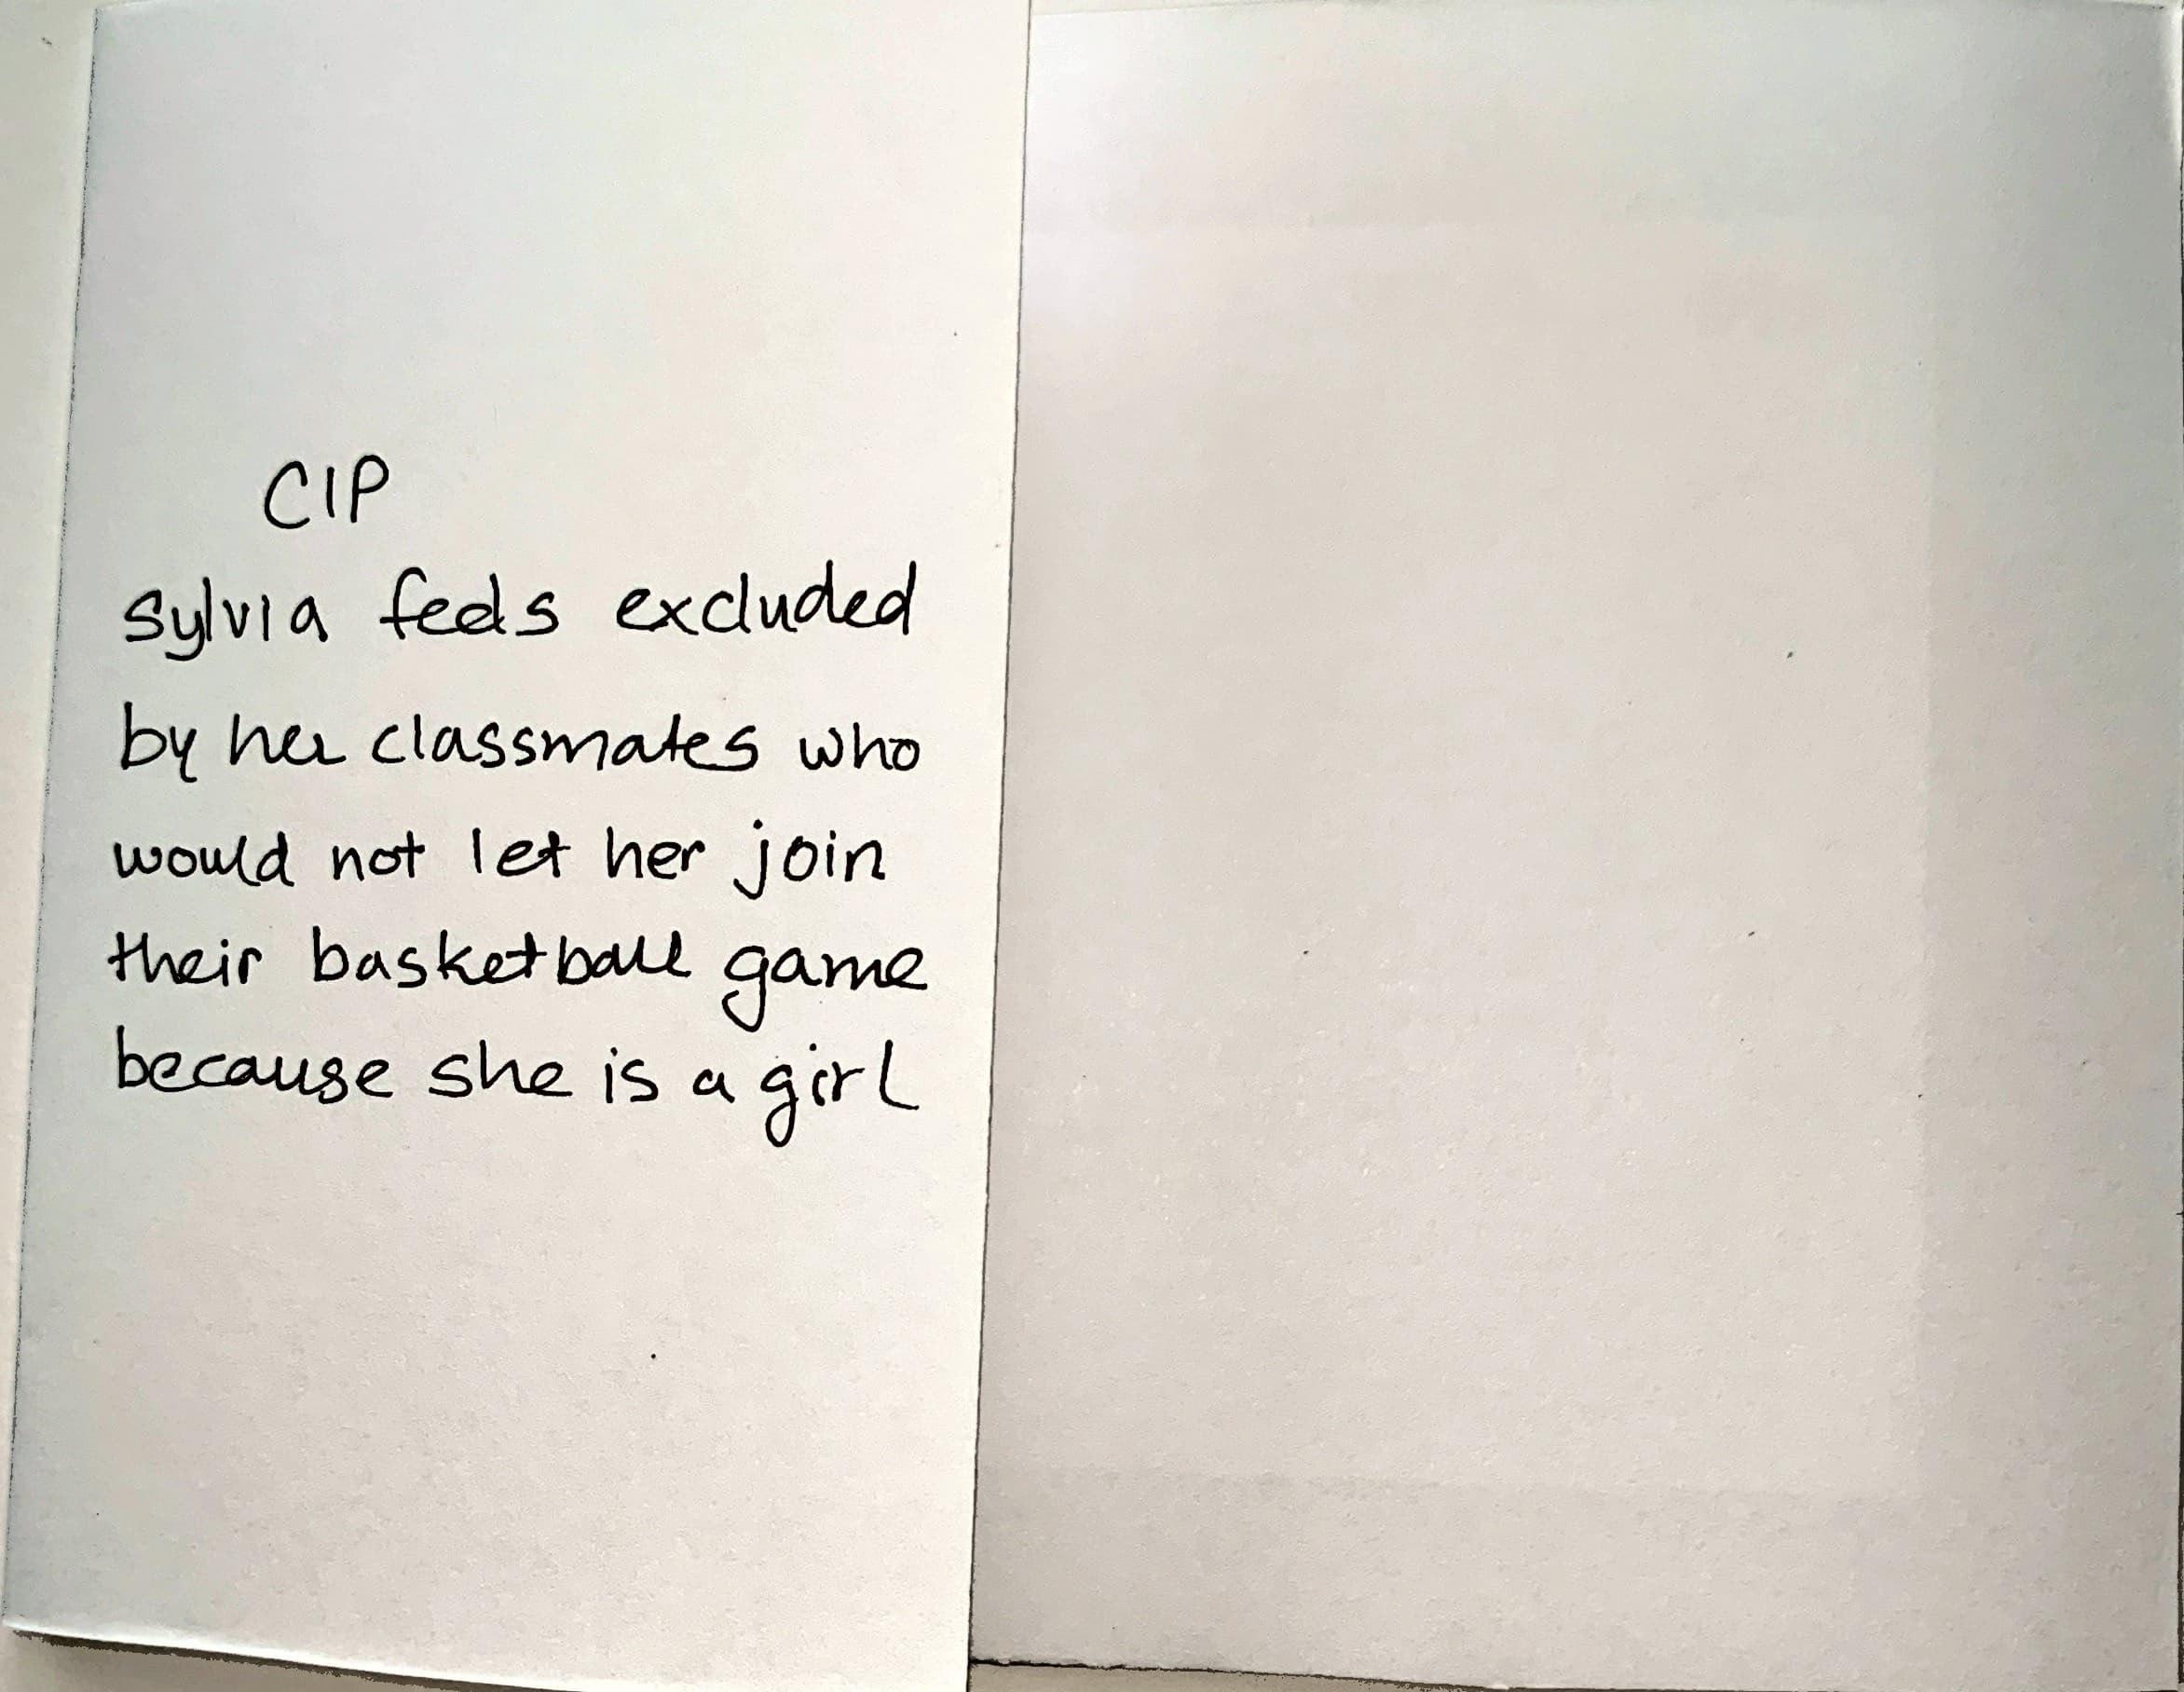 CIP
Sylvia feels excluded
by her classmates who
would not let her join
their basketball game
because she is a girl